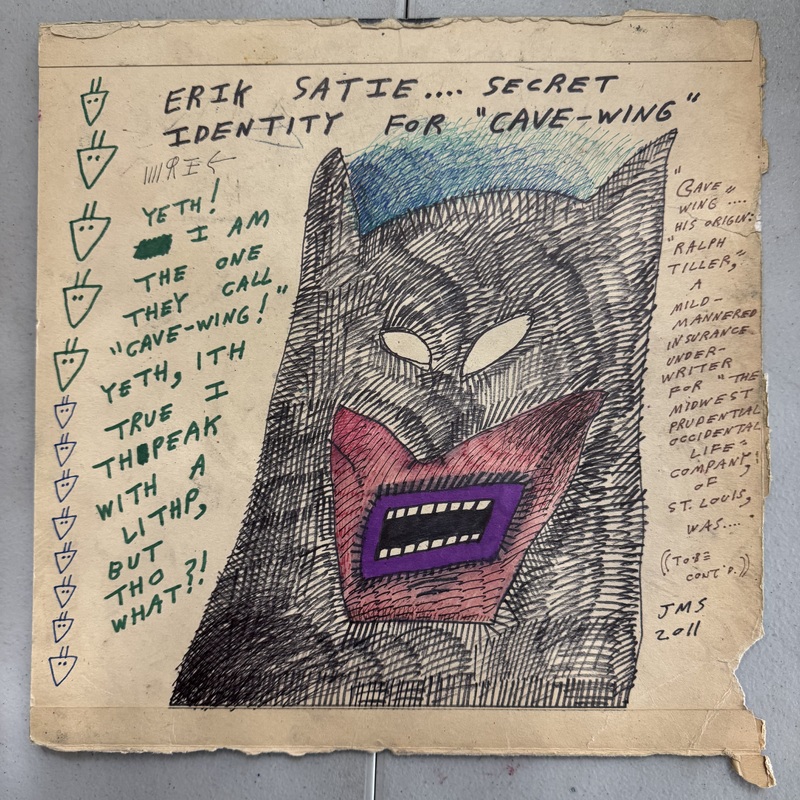 ERIK SATIE.... SECRET
IDENTITY FOR "CAVE-WING"
YETH!
I AM
THE ONE
THEY CALL
"CAVE-WING!"
YETH, ITH
TRUE I
THPEAK
WITH A
LITHP,
BUT
THO
WHAT?!
"CAVE
WING"....
HIS ORIGIN:
"RALPH
TILLER,"
A
MILD-
MANNERED
INSURANCE
UNDER-
WRITER
FOR "THE
MIDWEST
PRUDENTIAL
OCCIDENTAL
LIFE"
COMPANY,
OF
ST. LOUIS,
WAS....
(TO BE
CONT'D.)
JMS
2011